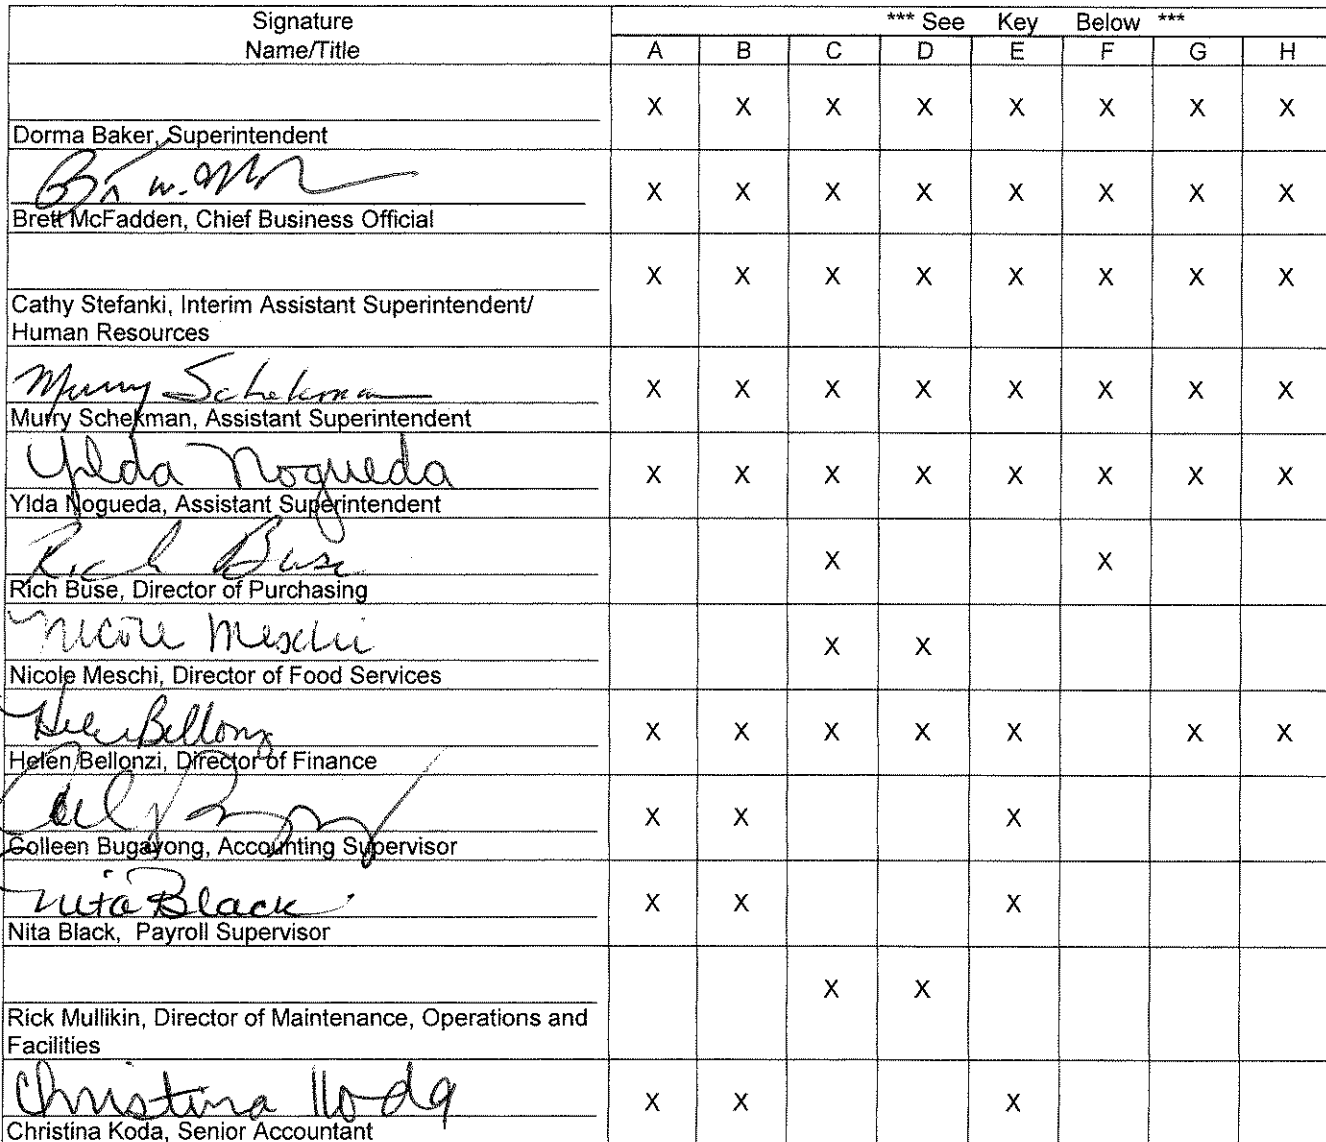 Signature
Name/Title
*** See Key Below ***
A B C D E F G H
X X X X X X X X
Dorma Baker, Superintendent
X X X X X X X X
Brett McFadden, Chief Business Official
X X X X X X X X
Cathy Stefanki, Interim Assistant Superintendent/
Human Resources
Murry Schekman
X X X X X X X X
Murry Schekman, Assistant Superintendent
Ylda Nogueda
X X X X X X X X
Ylda Nogueda, Assistant Superintendent
Rich Buse
X X
Rich Buse, Director of Purchasing
Nicole Meschi
X X
Nicole Meschi, Director of Food Services
Helen Bellonzi
X X X X X X X
Helen Bellonzi, Director of Finance
X X X
Colleen Bugayong, Accounting Supervisor
Nita Black
X X X
Nita Black, Payroll Supervisor
X X
Rick Mullikin, Director of Maintenance, Operations and
Facilities
Christina Koda
X X X
Christina Koda, Senior Accountant